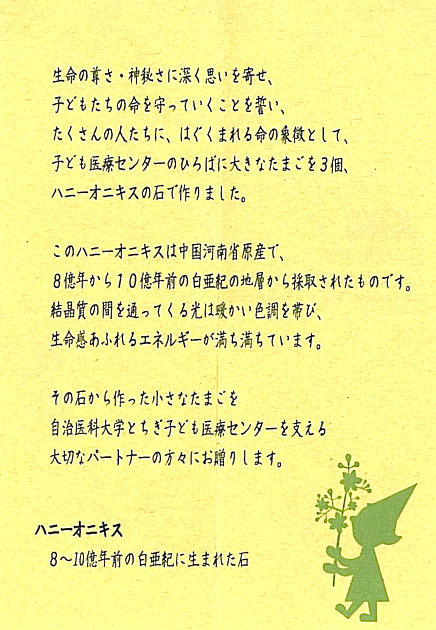 生命の尊さ・神秘さに深く思いを寄せ、
子どもたちの命を守っていくことを誓い、
たくさんの人たちに、はぐくまれる命の象徴として、
子ども医療センターのひろばに大きなたまごを3個、
ハニーオニキスの石で作りました。
このハニーオニキスは中国河南省原産で、
8億年から10億年前の白亜紀の地層から採取されたものです。
結晶質の間を通ってくる光は暖かい色調を帯び、
生命感あふれるエネルギーが満ち満ちています。
その石から作った小さなたまごを
自治医科大学とちぎ子ども医療センターを支える
大切なパートナーの方々にお贈りします。
ハニーオニキス
8〜10億年前の白亜紀に生まれた石